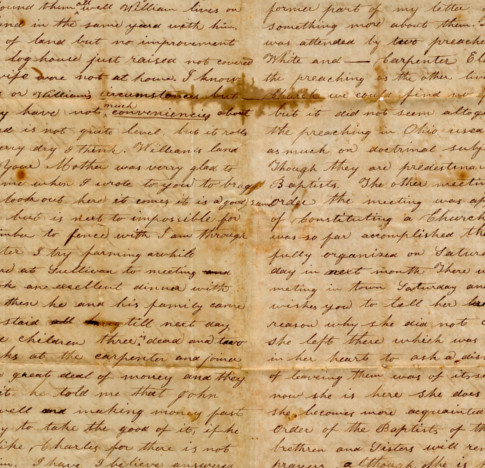 found them all well William lives on
and in the same yard with him.
of land but no improvement
log house just raised not covered
wife were not at home. I know
or William's circumstances but
y have not much conveniencies about
nd is not quite level but it rolls
very dry I think. William's land
Your Mother was very glad to
me when I wrote to you to brag
look out here it comes it is a good
but is next to impossible for
timber to fence with I am through
I try farming awhile
re at Sullivan to meeting and
an excellent dinner with
then he and his family came
staid all till next day.
children three dead and two
ks at the carpenter and joiner
great deal of money and they
it. he told me that John
well and making money fast
y to take the good of it, if he
like, Charles for there is not
I have I believe answered
former part of my letter
something more about them.
was attended by two preachers
White and — Carpenter
the preaching is the other
church we could find no
but it did not seem
the preaching in Ohio used
as much on doctrinal
Though they are
Baptists. The other meeting
Ordge the meeting was
of Constituting a Church
was so far accomplished
fully organised on
day in next month There
meting in town Saturday and
wishes you to tell her
reason why she did not
she left there which was
in her heart to ask a
of leaving them was of
now she is here she does
she becomes more acquainted
Order of the Baptists of
brethren and Sisters will
prayers a though she is